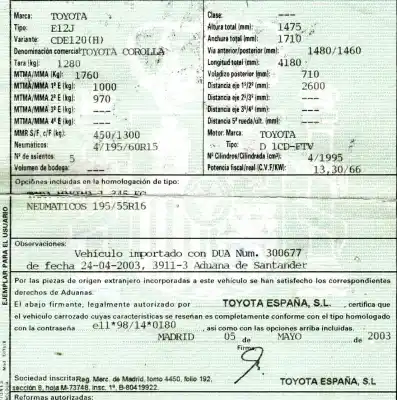 Marca: TOYOTA
Tipo: E12J
Variante: CDE120(H)
Denominación comercial: TOYOTA COROLLA
Tara (kg): 1280
MTMA/MMA (Kg): 1760
MTMA/MMA 1º E (kg): 1000
MTMA/MMA 2º E (kg): 970
MTMA/MMA 3º E (kg): ---
MTMA/MMA 4º E (kg): ---
MMR S/F, c/F (kg): 450/1300
Neumáticos: 4/195/60R15
Nº de asientos: 5
Volumen de bodega: ---
Clase: ----
Altura total (mm): 1475
Anchura total (mm): 1710
Vía anterior/posterior (mm): 1480/1460
Longitud total (mm): 4180
Voladizo posterior (mm): 710
Distancia eje 1º/2º (mm): 2600
Distancia eje 2º/3º (mm): ---
Distancia eje 3º/4º (mm): ---
Distancia 5ª rueda/últ. (mm): ---
Motor: Marca: TOYOTA
Tipo: D 1CD-FTV
Nº Cilindros/Cilindrada (cm³): 4/1995
Potencia fiscal/real (C.V.F/KW): 13,30/66
Opciones incluidas en la homologación de tipo:
NEUMATICOS 195/55R16
EJEMPLAR PARA EL USUARIO
Observaciones:
Vehículo importado con DUA Num. 300677
de fecha 24-04-2003, 3911-3 Aduana de Santander
Por las piezas de origen extranjero incorporadas a este vehículo se han satisfecho los correspondientes
derechos de Aduanas.
El abajo firmante, legalmente autorizado por TOYOTA ESPAÑA, S.L. , certifica que
el vehículo carrozado cuyas características se reseñan es completamente conforme con el tipo homologado
con la contraseña e11*98/14*0180 , así como con las opciones arriba incluidas.
MADRID 05 de MAYO de 2003
Firma:
Sociedad inscrita Reg. Marc. de Madrid, tomo 4450, folio 192,
sección 8, hoja M-73748, insc. 1ª, B-80419922.
TOYOTA ESPAÑA, S.L.
Reformas autorizadas: